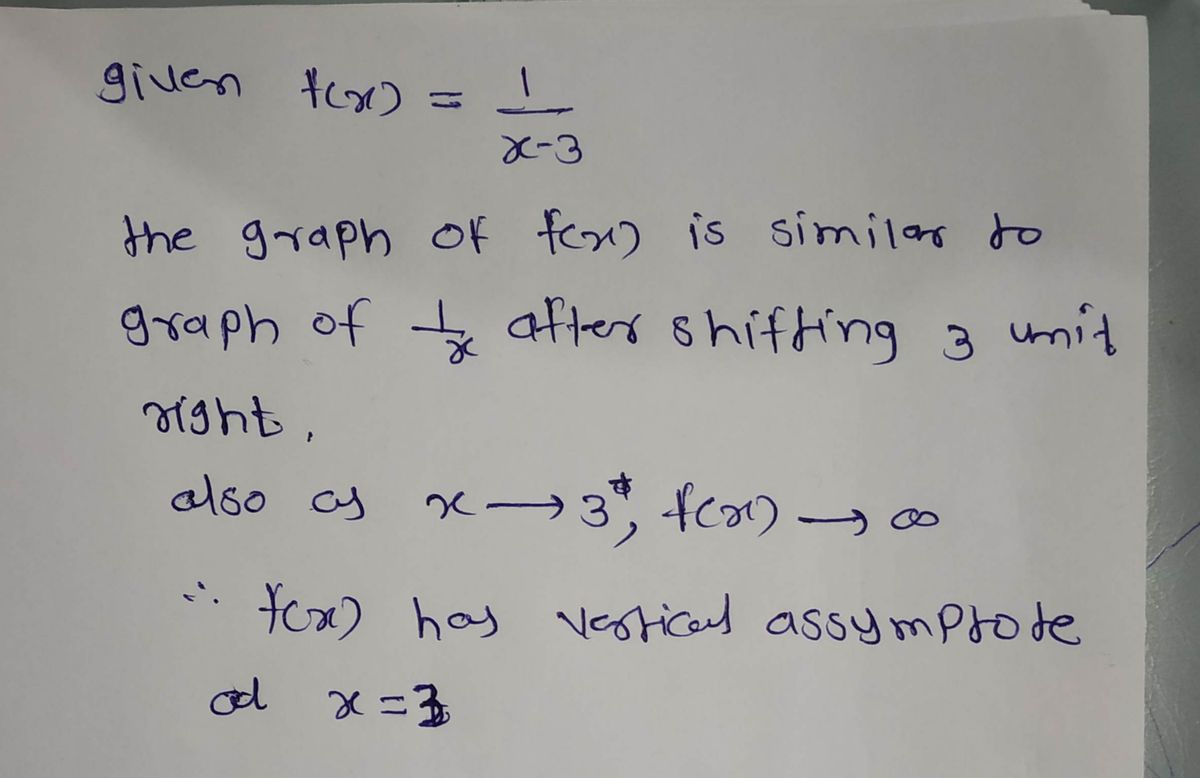 given f(x) = 1/(x-3)
the graph of f(x) is similar to
graph of 1/x after shifting 3 unit
right,
also as x → 3⁺, f(x) → ∞
∴ f(x) has vertical assymptote
at x = 3